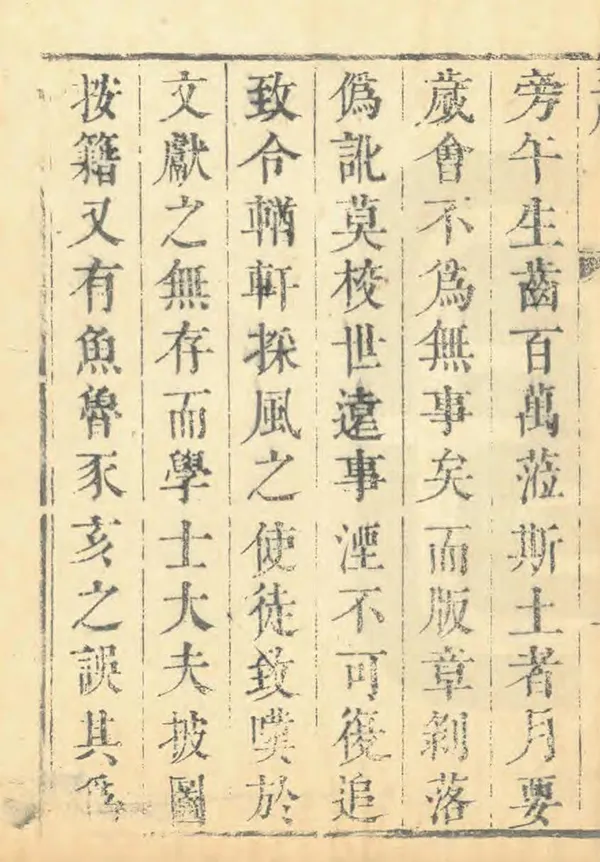 旁午生齒百萬蒞斯土者月要
歲會不爲無事矣而版章剝落
僞訛莫校世遠事湮不可復追
致令輶軒採風之使徒致嘆於
文獻之無存而學士大夫披圖
按籍又有魚魯豕亥之誤其爲